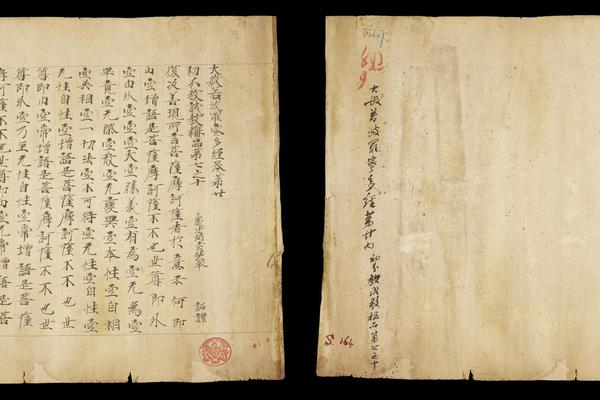 大般若波羅蜜多經卷第廿
初分教誡教授品第七之十
三藏法師玄奘奉 詔譯
復次善現所言菩薩摩訶薩者於意云何即
内空增語是菩薩摩訶薩不不也世尊即外
空内外空空空大空勝義空有為空无為空
畢竟空无際空散空无變異空本性空自相
空共相空一切法空不可得空无性空自性空
无性自性空增語是菩薩摩訶薩不不也世
尊即内空常增語是菩薩摩訶薩不不也世
尊即外空乃至无性自性空常增語是菩薩
摩訶薩不不也世尊即内空无常增語是菩
大般若波羅蜜多經第廿内 初分教誡教授品第七之十
S. 164